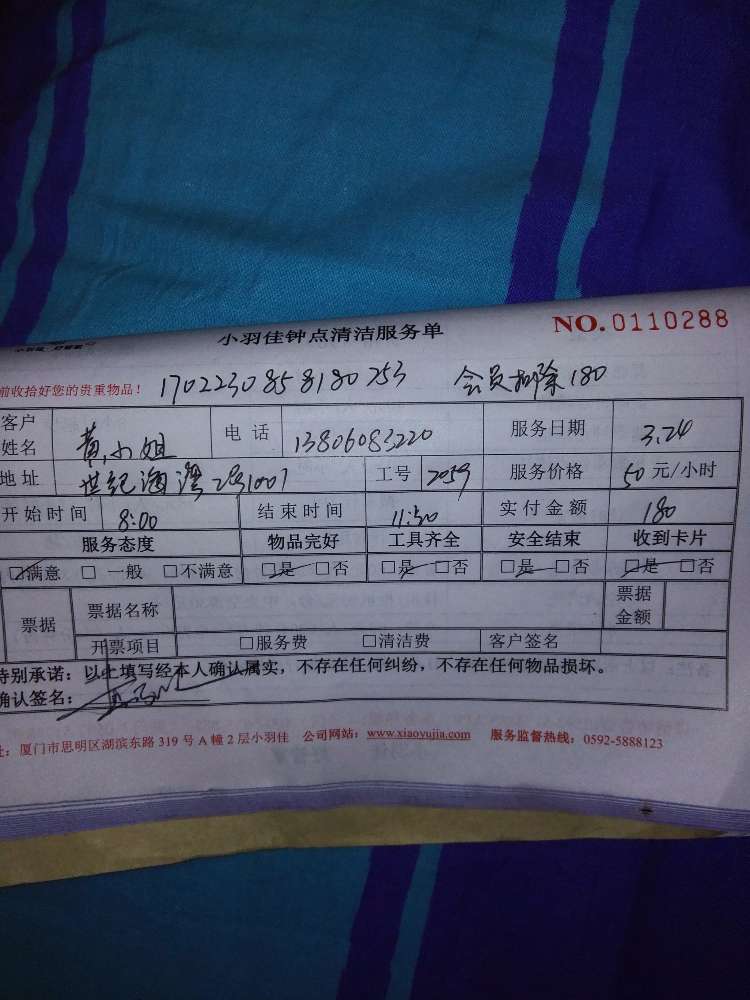 小羽佳钟点清洁服务单
NO.0110288
前收拾好您的贵重物品！ 1702230858180253 会员扣除180
客户姓名 黄小姐 电 话 13806083220 服务日期 3.24
地址 世纪海湾2号1007 工号 2059 服务价格 50 元/小时
开始时间 8:00 结束时间 11:50 实付金额 180
服务态度 物品完好 工具齐全 安全结束 收到卡片
☑满意 □ 一般 □不满意 □是 □否 □是 □否 □是 □否 □是 □否
票据 票据名称 票据金额
开票项目 □服务费 □清洁费 客户签名
特别承诺：以上填写经本人确认属实，不存在任何纠纷，不存在任何物品损坏。
确认签名：
址：厦门市思明区湖滨东路 319 号 A 幢 2 层小羽佳 公司网站：www.xiaoyujia.com 服务监督热线：0592-5888123